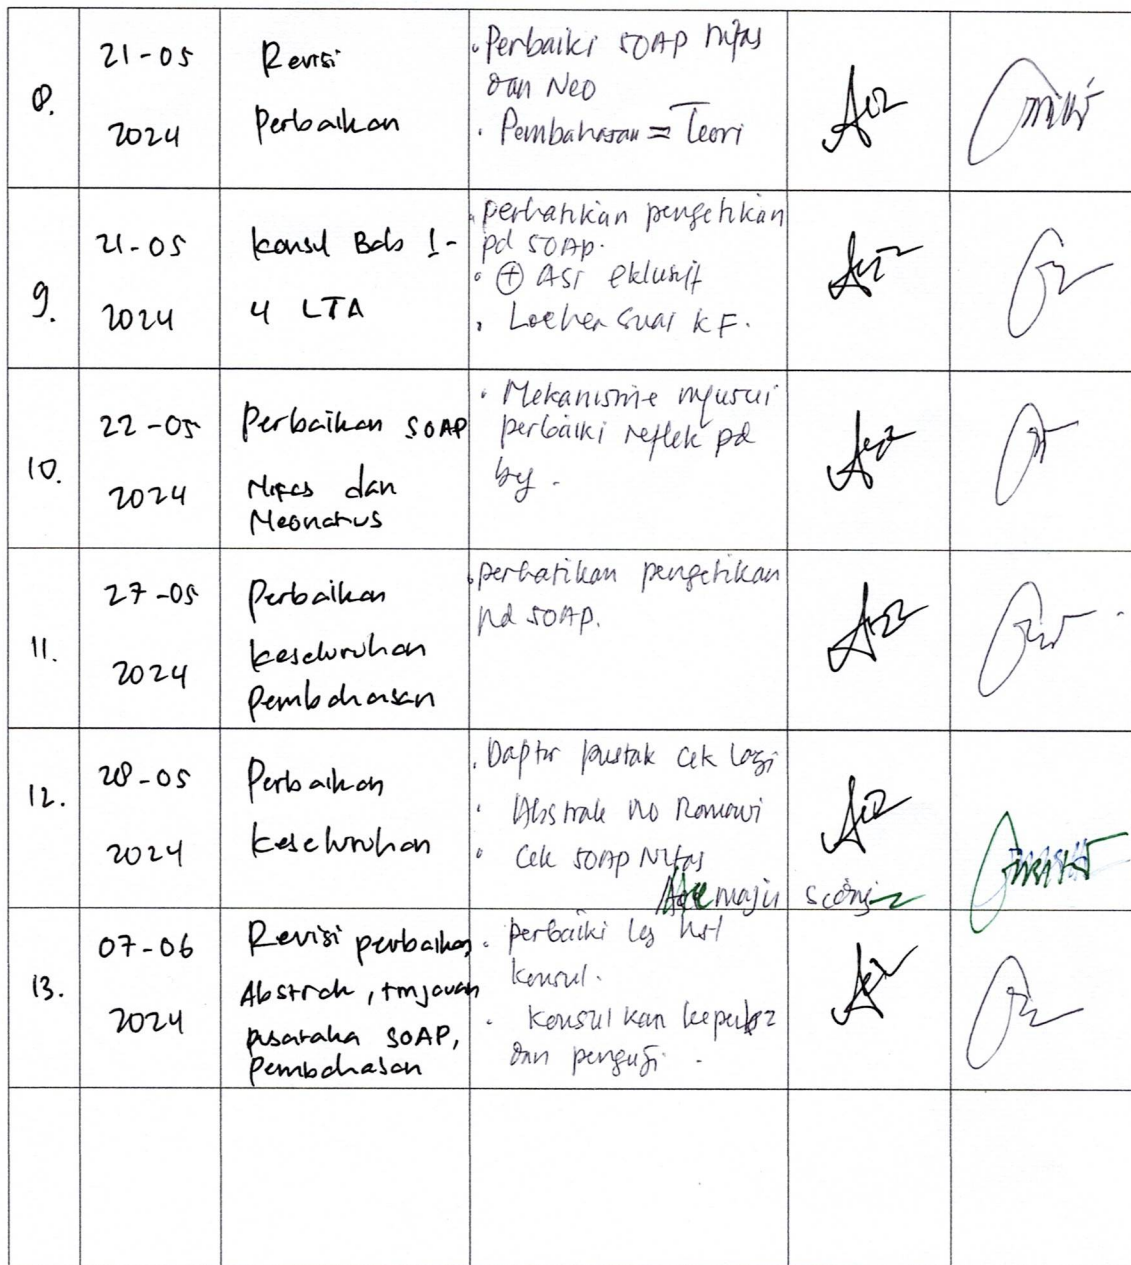 8.
21-05
2024
Revisi
Perbaikan
. Perbaiki SOAP nifas
dan Neo
. Pembahasan = Teori
9.
21-05
2024
Konsul Bab 1-
4 LTA
. perhatikan pengetikan
pd SOAP.
. + Asi eklusif
. Lochea suai KF.
10.
22-05
2024
Perbaikan SOAP
Nifas dan
Neonatus
. Mekanisme nyusui
perbaiki reflek pd
by.
11.
27-05
2024
Perbaikan
keseluruhan
Pembahasan
. perhatikan pengetikan
pd SOAP.
12.
28-05
2024
Perbaikan
keseluruhan
. Daptar pustak cek lagi
. Abstrak no Romawi
. Cek SOAP Nifas
Acc maju
13.
07-06
2024
Revisi perbaikan
Abstrak, tinjauan
pusataka SOAP,
Pembahasan
. perbaiki
konsul.
. konsulkan
dan penguji.